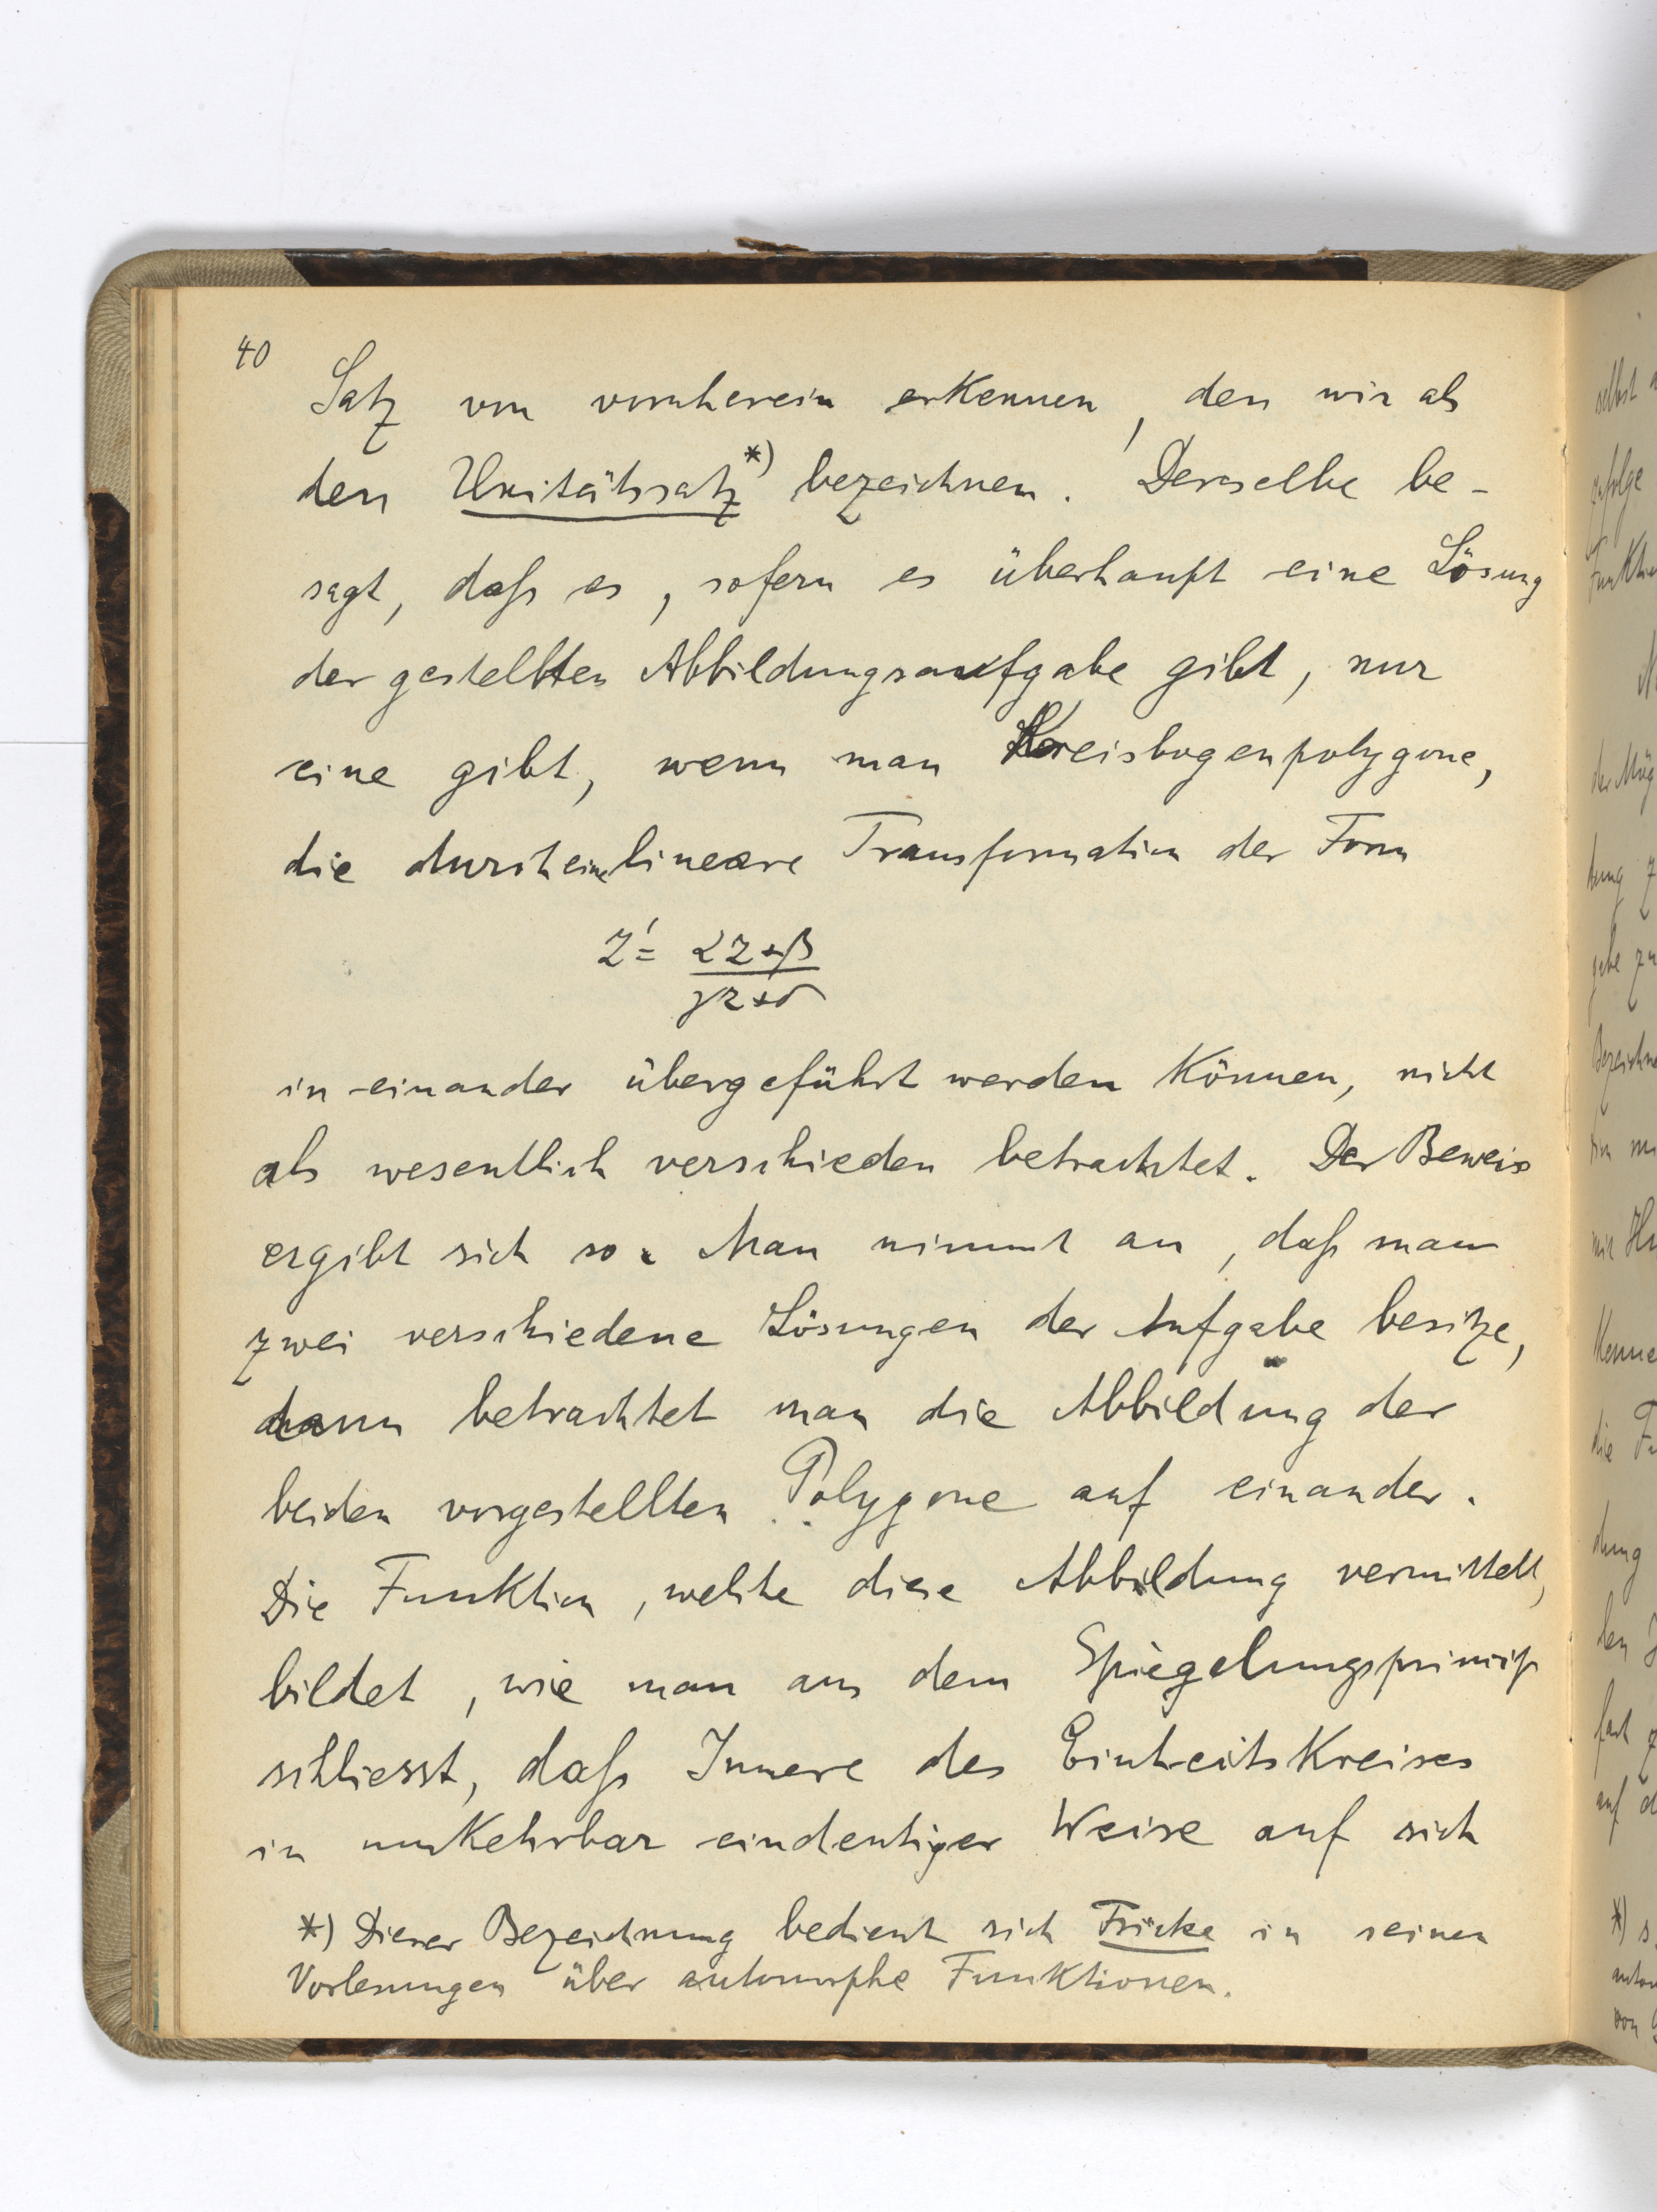 40
Satz von vornherein erkennen, den wir als
den Unitätssatz *) bezeichnen. Derselbe be-
sagt, daß es, sofern es überhaupt eine Lösung
der gestellten Abbildungsaufgabe gibt, nur
eine gibt, wenn man Kreisbogenpolygone,
die durch eine lineare Transformation der Form
z' = αz+β / γz+δ
in einander übergeführt werden können, nicht
als wesentlich verschieden betrachtet. Der Beweis
ergibt sich so. Man nimmt an, daß man
zwei verschiedene Lösungen der Aufgabe besitze,
dann betrachtet man die Abbildung der
beiden vorgestellten Polygone auf einander.
Die Funktion, welche diese Abbildung vermittelt,
bildet, wie man aus dem Spiegelungsprincip
schliesst, daß Innere des Einheitskreises
in umkehrbar eindeutiger Weise auf sich
*) Dieser Bezeichnung bedient sich Fricke in seinen
Vorlesungen über automorphe Funktionen.